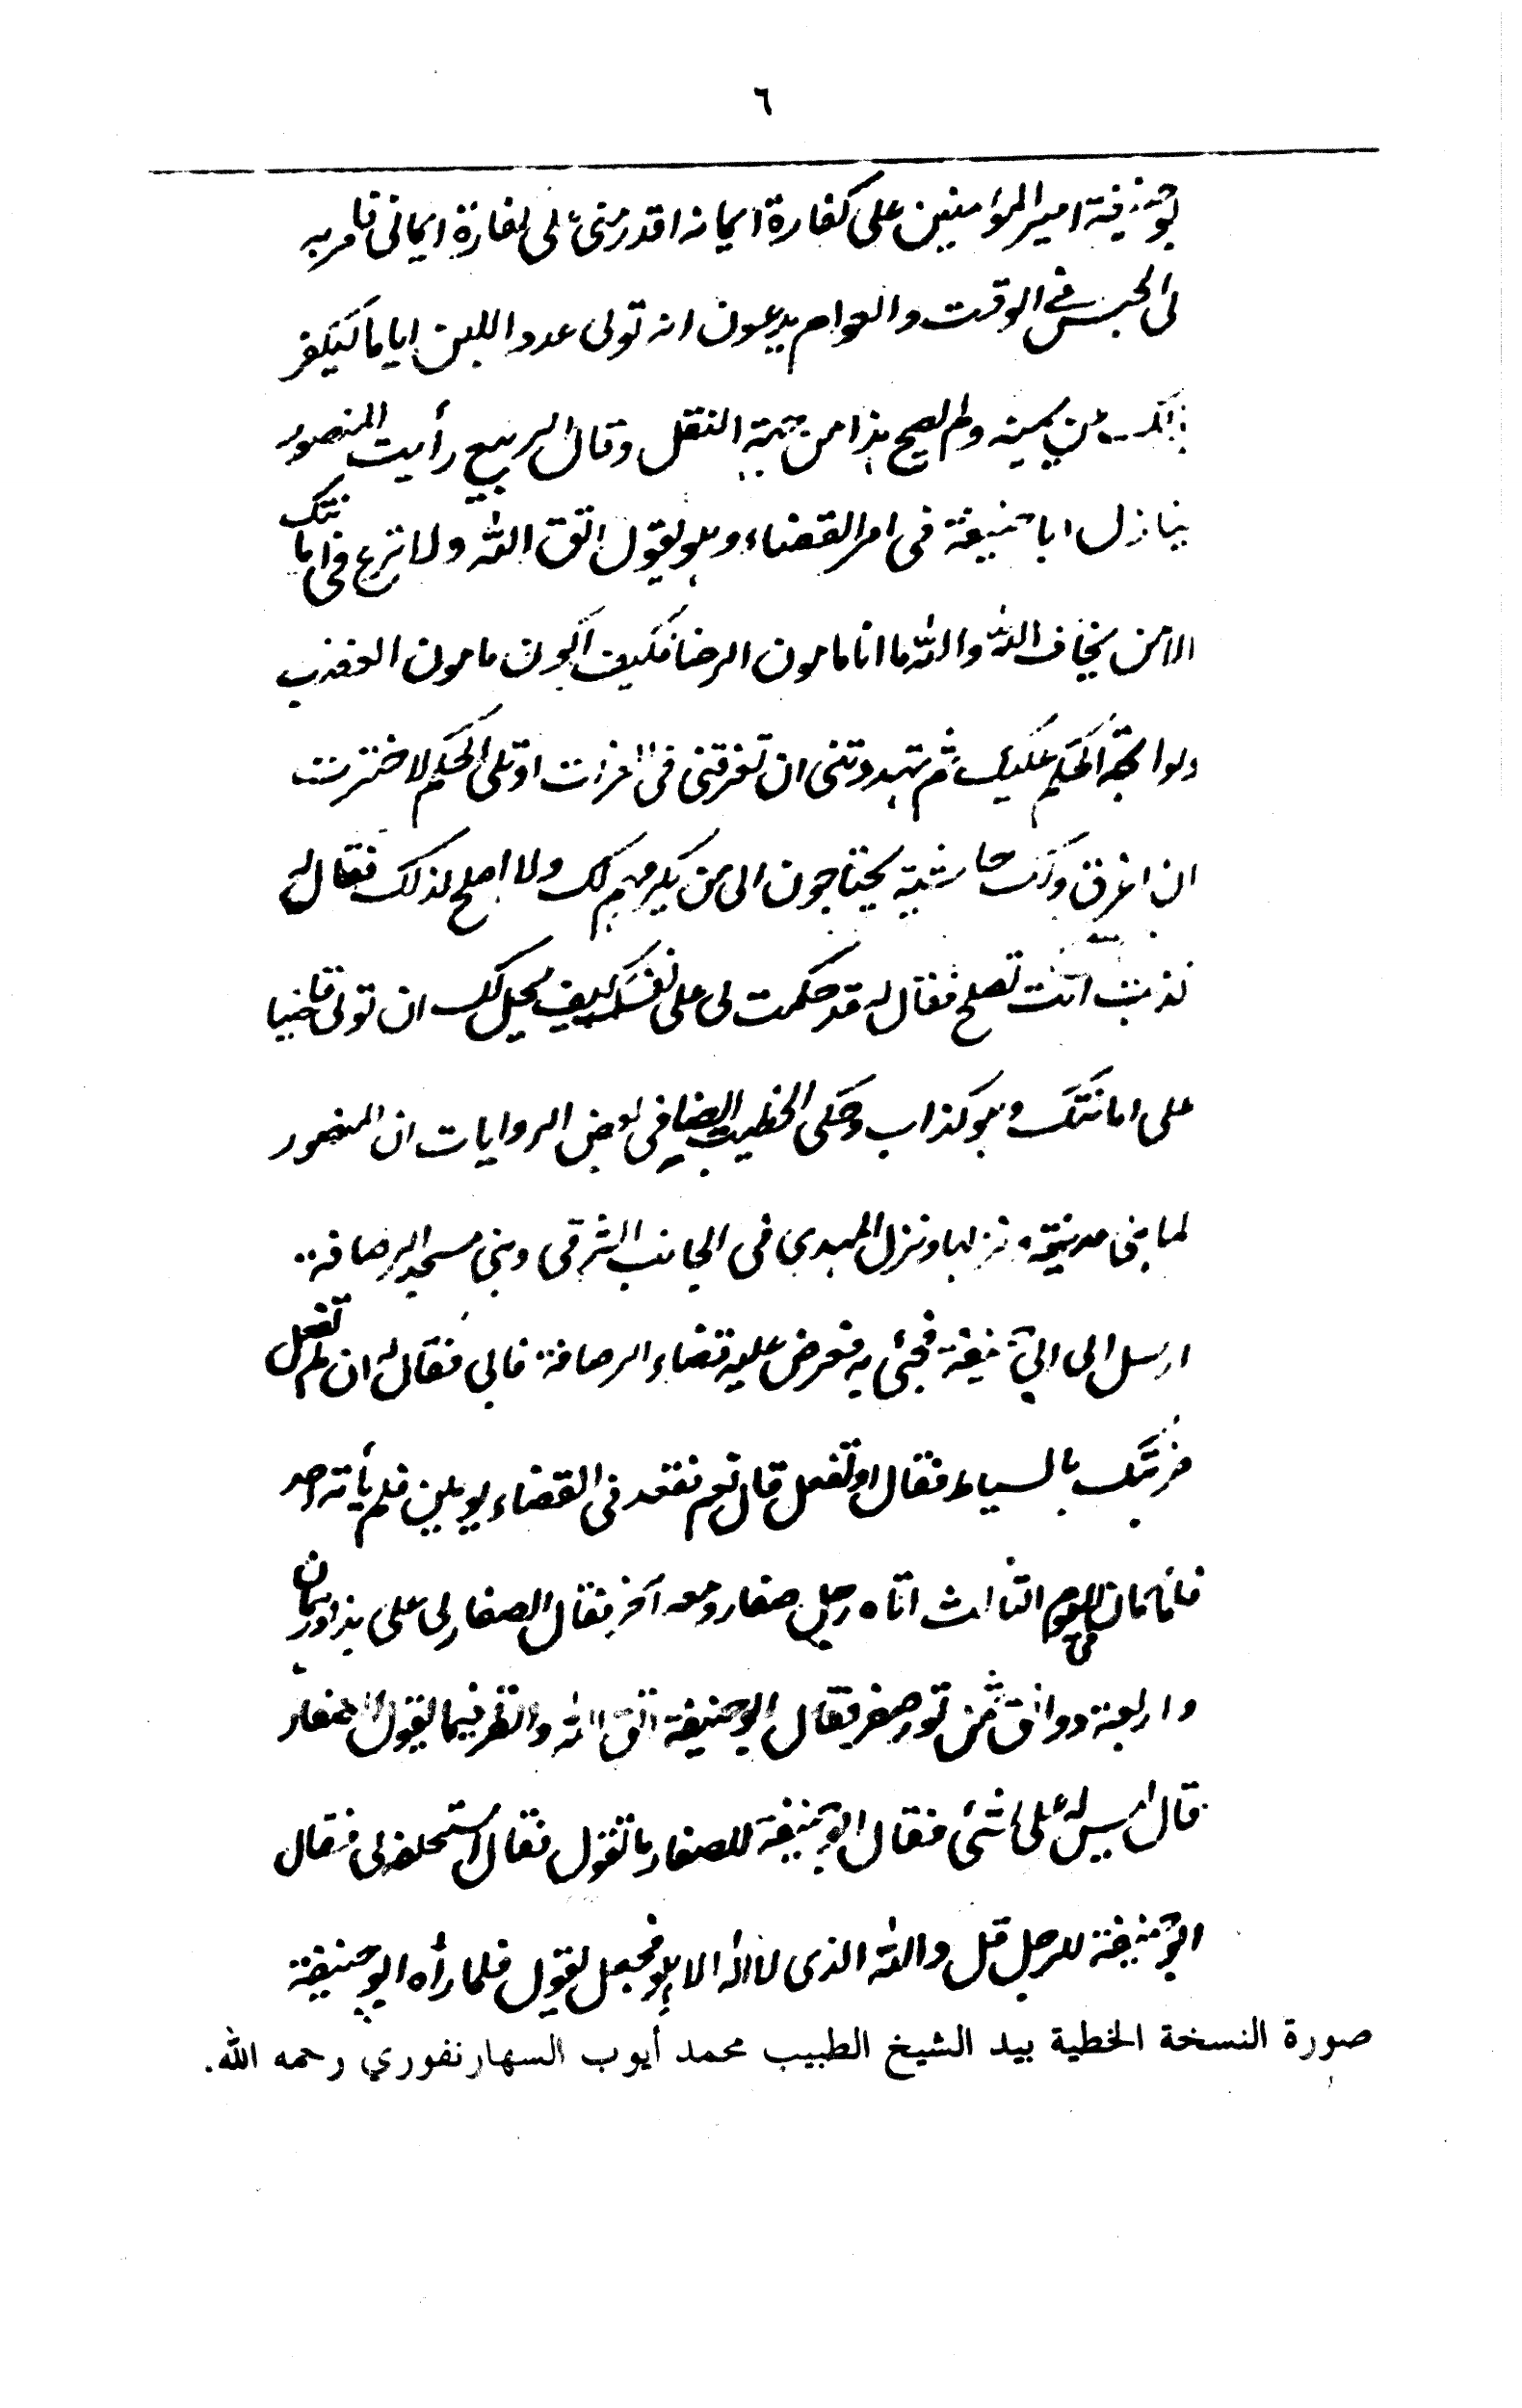 ٦
بوحنيفة امير المؤمنين على كفارة ايمانه اقدر منى على كفارة ايمانى فامر به
الى الحبس فى الوقت والعوام يدعون انه تولى عدد اللبن اياما ليكفر
بذلك عن يمينه ولم يصح هذا من جهة النقل وقال الربيع رأيت المنصور
ينازل ابا حنيفة فى امر القضاء وهو يقول اتق الله ولا ترع فى امانتك
الا من يخاف الله والله ما انا مامون الرضا فكيف اكون مامون الغضب
ولو اتجه الحكم عليك ثم تهددتنى ان تغرقنى فى الفرات او تلى الحكم لاخترت
ان اغرق ولك حاشية يحتاجون الى من يكرمهم لك ولا اصلح لذلك فقال له
كذبت انت تصلح فقال له قد حكمت لى على نفسك كيف يحل لك ان تولى قاضيا
على امانتك وهو كذاب وحكى الخطيب ايضا فى بعض الروايات ان المنصور
لما بنى مدينته ونزلها ونزل المهدى فى الجانب الشرقى وبنى مسجد الرصافة
ارسل الى ابى حنيفة فجئى به فعرض عليه قضاء الرصافة فابى فقال له ان لم تفعل
ضربتك بالسياط فقال اوتفعل قال نعم فقعد فى القضاء يومين فلم يأته احد
فلما كان فى اليوم الثالث اتاه رجل صفار ومعه آخر فقال الصفار لى على هذا درهمان
واربعة دوانق ثمن تور صفر فقال ابوحنيفة اتق الله وانظر فيما يقول الصفار
قال ليس له على شئى فقال ابوحنيفة للصفار ما تقول فقال استحلفه لى فقال
ابوحنيفة للرجل قل والله الذى لا اله الا هو فجعل يقول فلما رأه ابوحنيفة
صورة النسخة الخطية بيد الشيخ الطبيب محمد أيوب السهارنفوري رحمه الله.